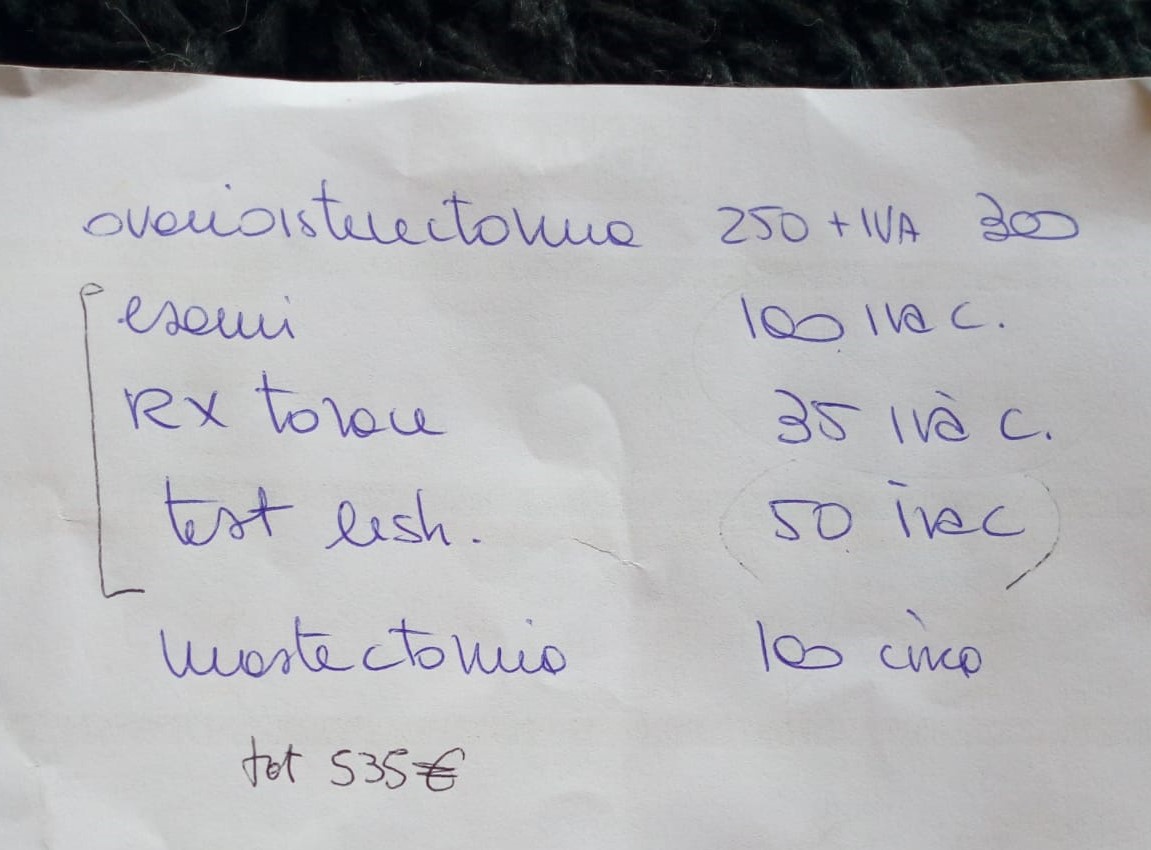 ovarioisterectomia 250 + IVA 300
esami 100 iva c.
RX torace 35 ivà c.
test lesh. 50 iva c
mastectomia 100 circa
tot 535€